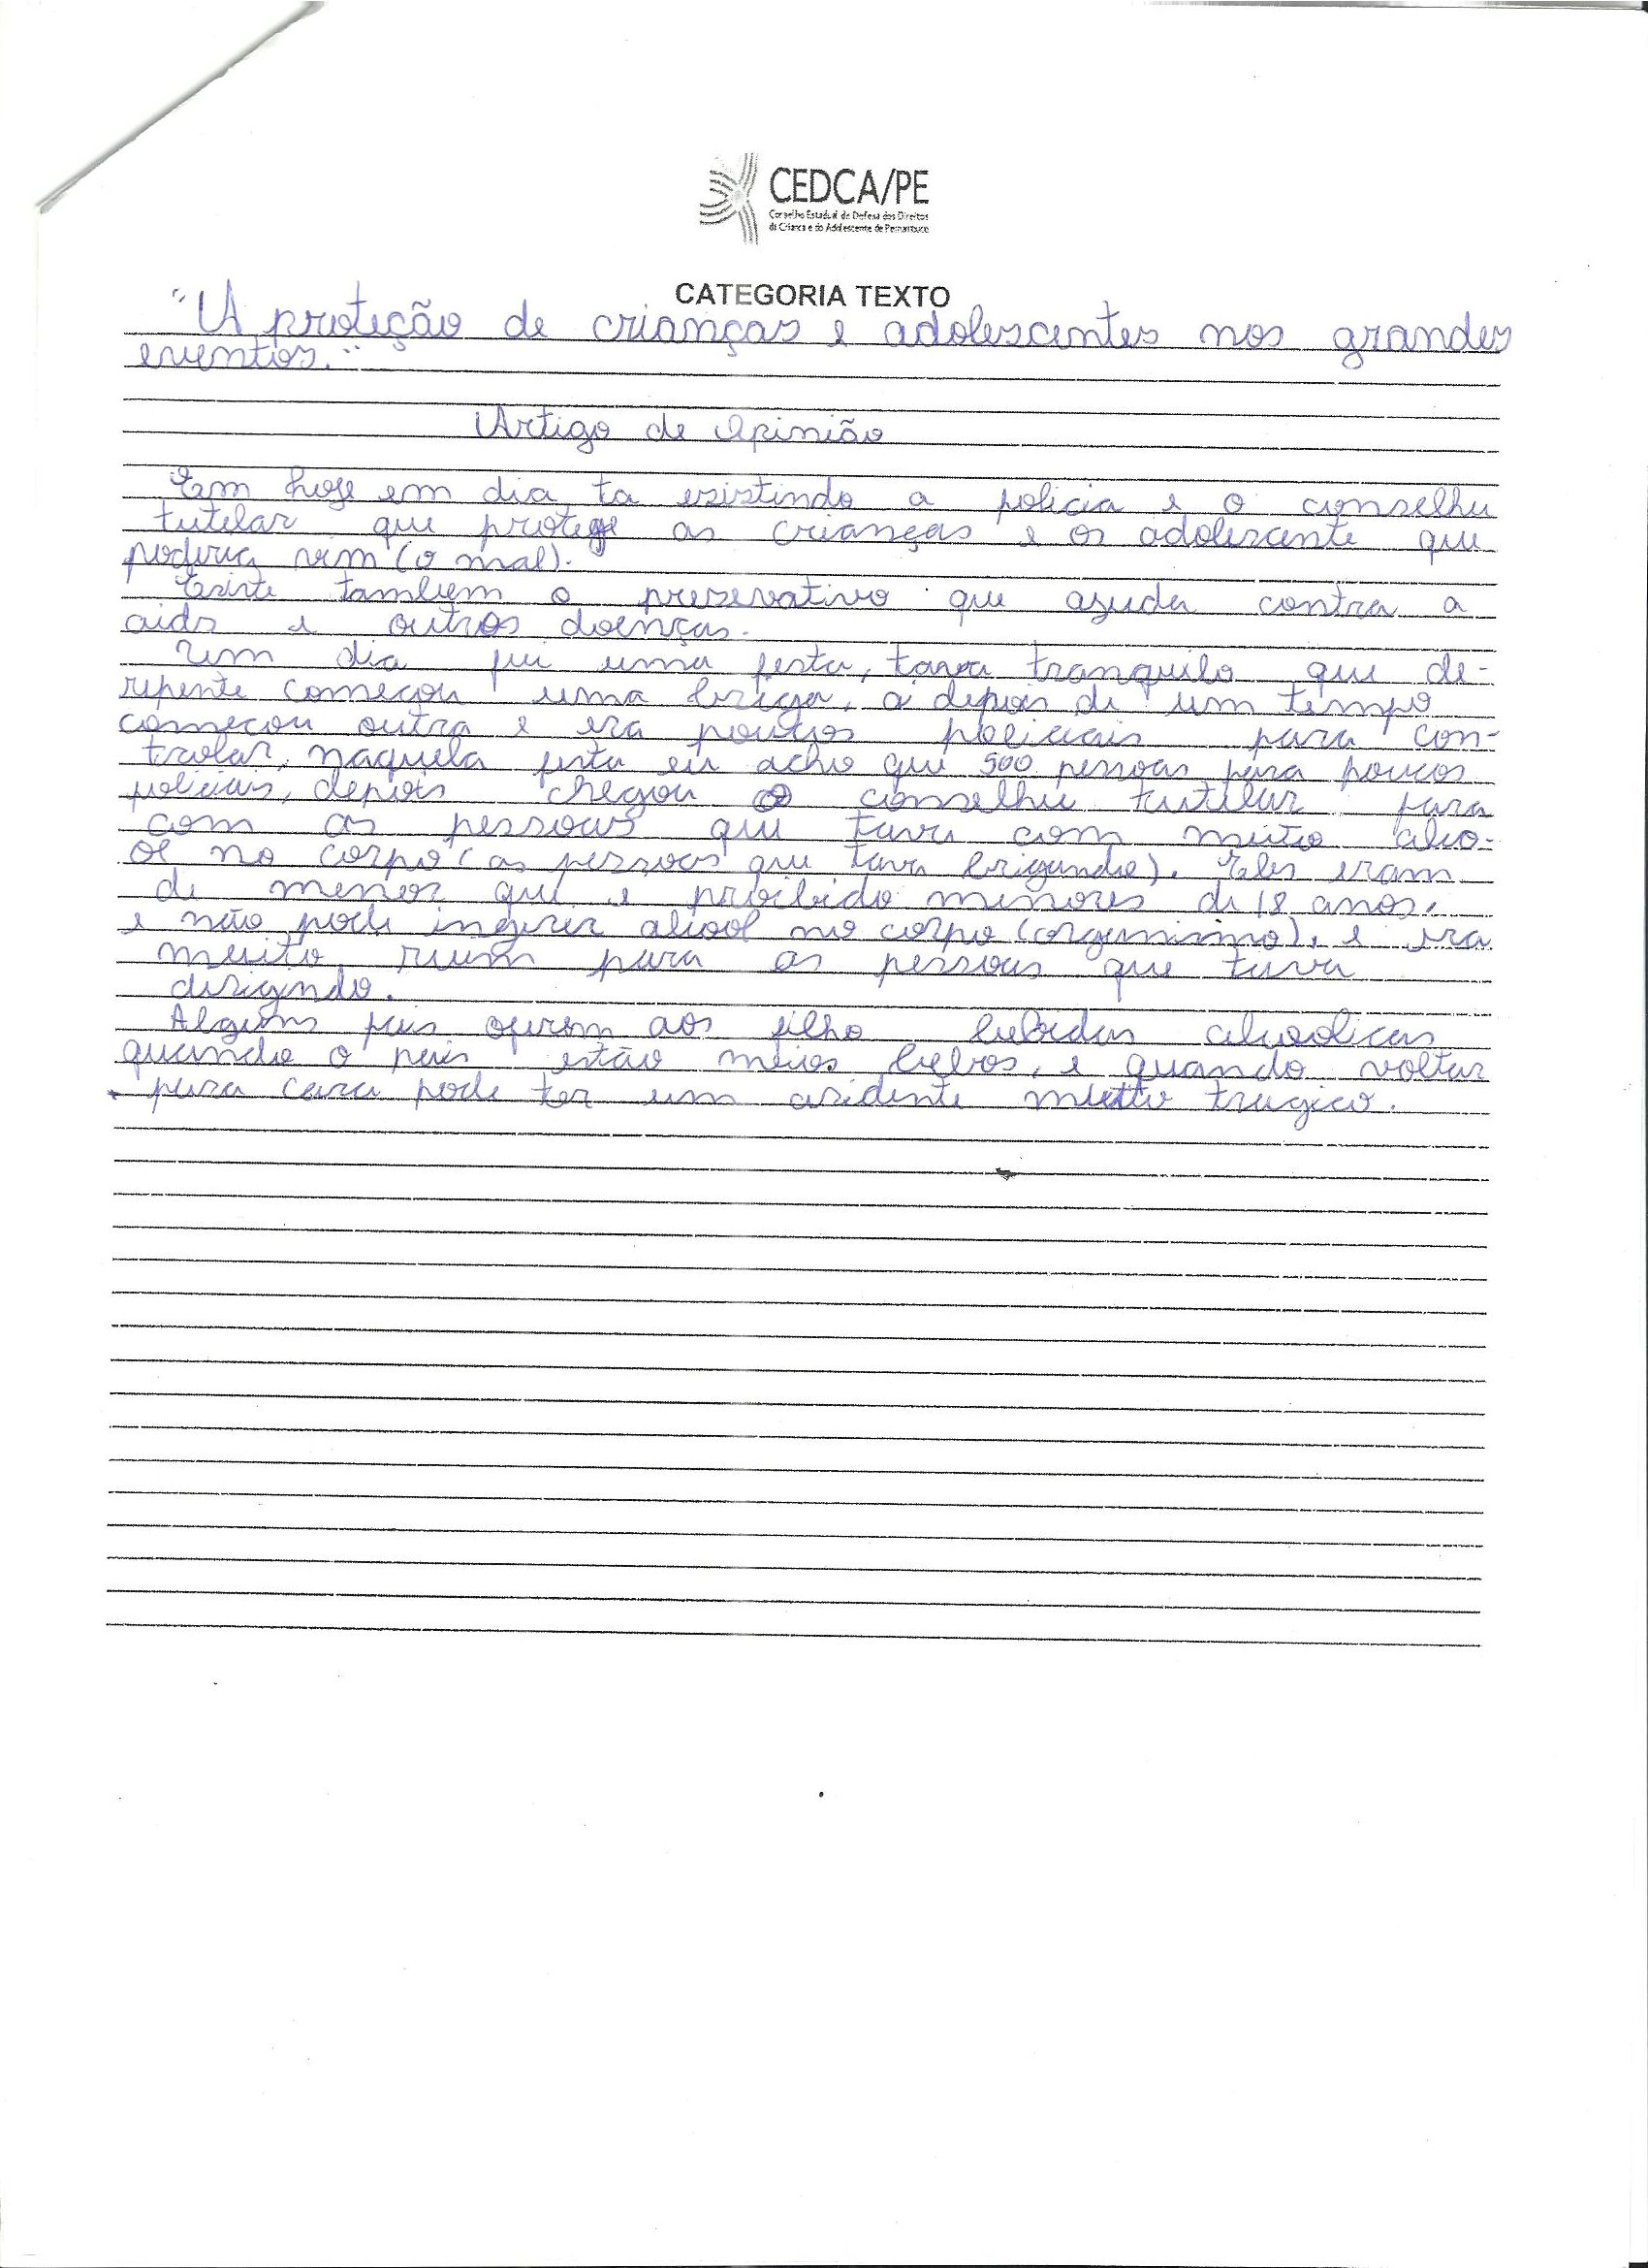 CEDCA/PE
Conselho Estadual de Defesa dos Direitos
da Criança e do Adolescente de Pernambuco
CATEGORIA TEXTO
"A proteção de crianças e adolescentes nos grandes
eventos."
Artigo de Opinião
Em hoje em dia ta existindo a policia e o conselhu
tutelar que protege as crianças e os adolescente que
poderia vim (o mal).
Existe tambem o preservativo que ajuda contra a
aids e outros doenças.
Um dia fui uma festa, tava tranquilo que de-
repente começou uma briga, a depois de um tempo
começou outra e era poucos policiais para con-
trolar, naquela festa eu acho que 500 pessoas para poucos
policiais, depois chegou o conselhu tutelar para
com as pessoas que tava com muito alco-
ol no corpo (as pessoas que tava brigando). Eles eram
de menor que e proibido menores de 18 anos,
e não pode ingerir alcool no corpo (organismo), e era
muito ruim para as pessoas que tava
dirigindo.
Alguns pais oferem aos filho bebidas alcoolicas
quando o pais estão meios bebos, e quando voltar
para casa pode ter um asidente muito tragico.